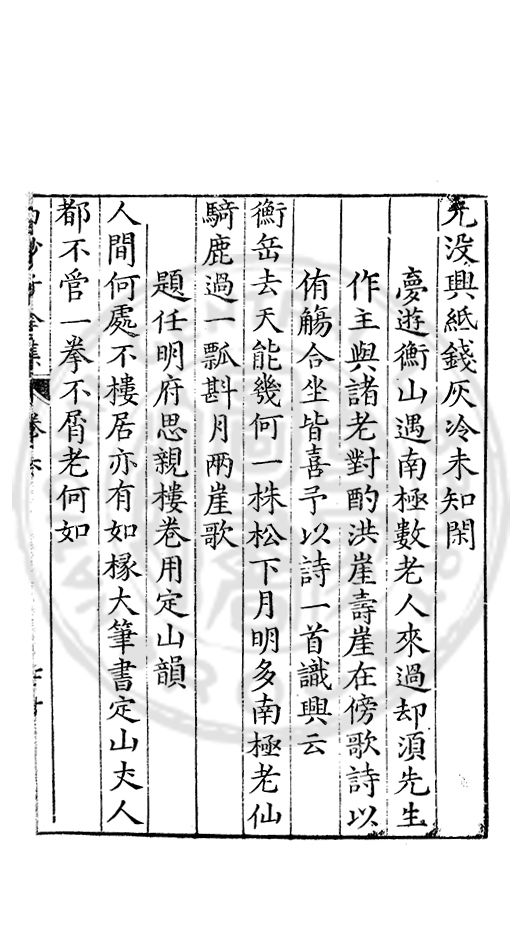 凢没興紙錢灰冷未知閑
夢遊衡山遇南極數老人來過却須先生
作主與諸老對酌洪崖壽崖在傍歌詩以
侑觴合坐皆喜予以詩一首識興云
衡岳去天能幾何一株松下月明多南極老仙
騎鹿過一瓢斟月兩崖歌
題任明府思親樓卷用定山韻
人間何處不樓居亦有如椽大筆書定山夫人
都不管一拳不屑老何如